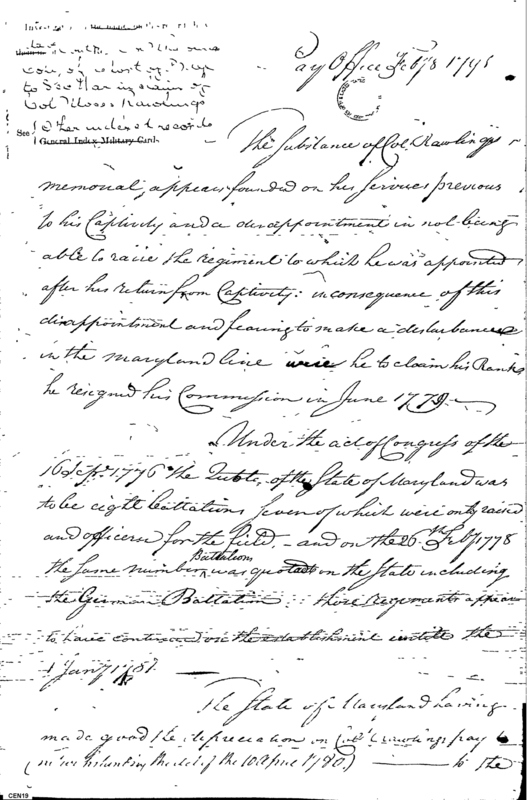 con, of report of
to Sec War in claim of
Col Moses Rawlings
other undexed records
See General Index Military Card.
Pay Office Feby 8 1798
The Substance of Col. Rawlings
memorial, appears founded on his Services previous
to his Captivity and a disappointment in not being
able to raise the regiment to which he was appointed
after his return from Captivity: in consequence of this
disappointment and fearing to make a disturbance
in the maryland line were he to claim his Rank
he resigned his Commission in June 1779
Under the act of Congress of the
16 Sepr. 1776 the Quota of the State of Maryland was
to be eight battalions seven of which were only raised
and officered for the field. and on the 26th Feby 1778
the same number Battalions was quotaed on the State including
the German Battalion: those regiments appear
to have continued on the establishment untill the
1 Jany 1781.
The State of Maryland having
made good the depreciation on Col. Rawlings pay
(notwithstanding the Act of the 10 April 1780.) to the
CEN19